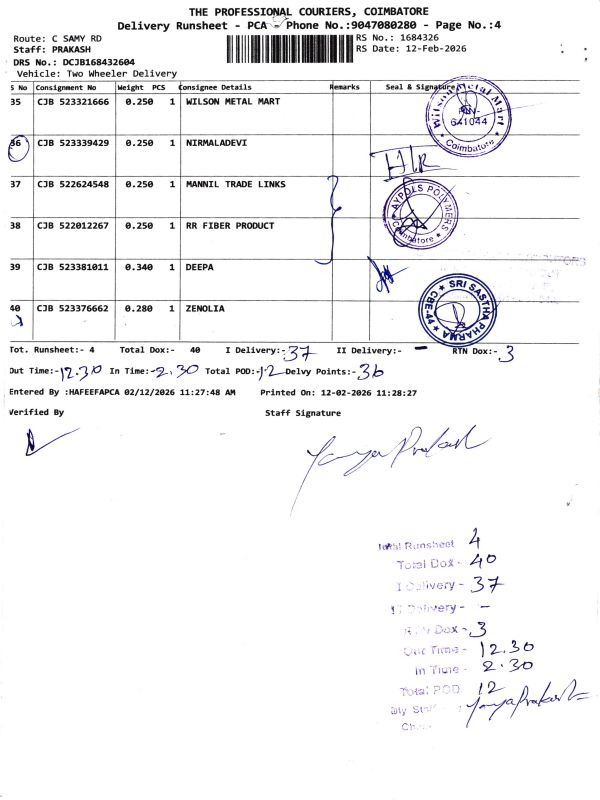 THE PROFESSIONAL COURIERS, COIMBATORE
Delivery Runsheet - PCA - Phone No.:9047080280 - Page No.:4
Route: C SAMY RD
RS No.: 1684326
Staff: PRAKASH
RS Date: 12-Feb-2026
DRS No.: DCJB168432604
Vehicle: Two Wheeler Delivery
S No Consignment No Weight PCS Consignee Details Remarks Seal & Signature
35 CJB 523321666 0.250 1 WILSON METAL MART
Wilson Metal Mart
641044
Coimbatore
36 CJB 523339429 0.250 1 NIRMALADEVI
37 CJB 522624548 0.250 1 MANNIL TRADE LINKS
AYPOLS POLYMERS
Coimbatore
38 CJB 522012267 0.250 1 RR FIBER PRODUCT
39 CJB 523381011 0.340 1 DEEPA
40 CJB 523376662 0.280 1 ZENOLIA
SRI SASTHA PHARMA
CBE-44
Tot. Runsheet:- 4 Total Dox:- 40 I Delivery:- 37 II Delivery:- - RTN Dox:- 3
Out Time:- 12.30 In Time:- 2.30 Total POD:- 12 Delvy Points:- 36
Entered By :HAFEEFAPCA 02/12/2026 11:27:48 AM Printed On: 12-02-2026 11:28:27
Verified By Staff Signature
Total Runsheet 4
Total Dox - 40
I Delivery - 37
II Delivery - -
RTN Dox - 3
Out Time - 12.30
In Time - 2.30
Total POD 12